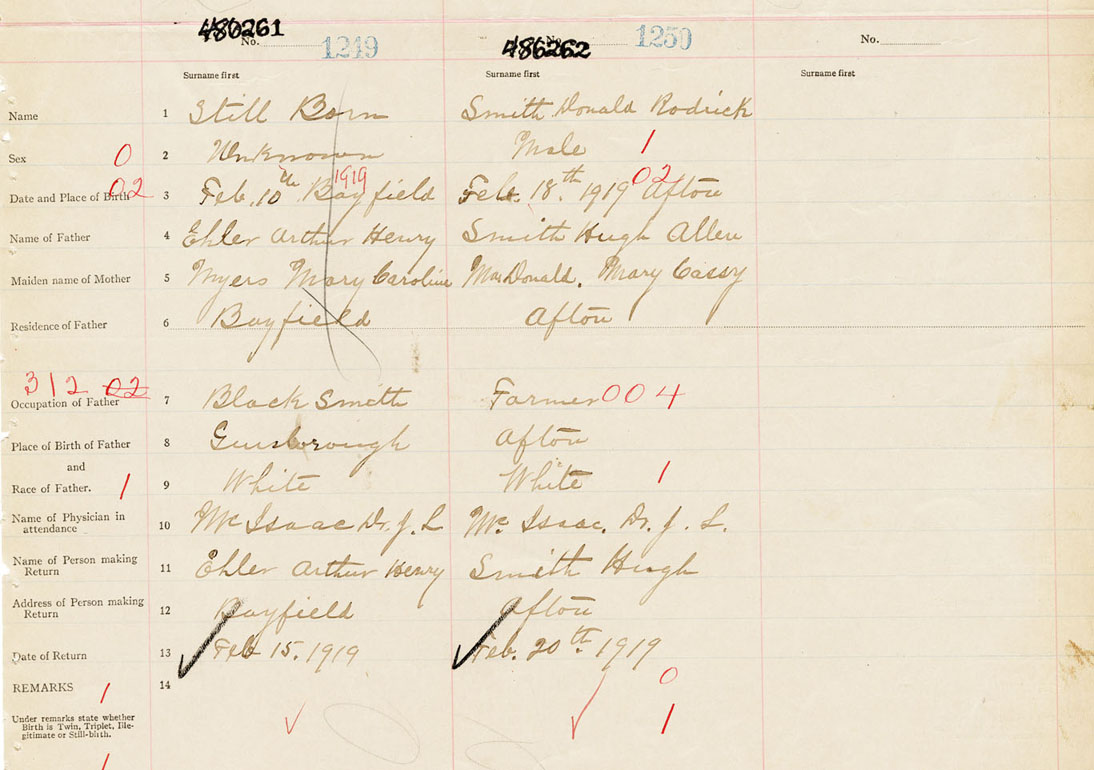 480261 486262
No. 1249 No. 1250 No.
Surname first Surname first Surname first
Name 1 Still Born Smith Donald Rodrick
Sex 0 2 Unknown Male 1
Date and Place of Birth 02 3 Feb. 10th 1919 Bayfield Feb. 18th 1919 02 Afton
Name of Father 4 Ehler Arthur Henry Smith Hugh Allen
Maiden name of Mother 5 Myers Mary Caroline MacDonald, Mary Cassy
Residence of Father 6 Bayfield Afton
312 02
Occupation of Father 7 Black Smith Farmer 004
Place of Birth of Father 8 Afton
and
Race of Father. 1 9 White White 1
Name of Physician in attendance 10 McIsaac Dr. J. L McIsaac, Dr. J. L.
Name of Person making Return 11 Ehler Arthur Henry Smith Hugh
Address of Person making Return 12 Bayfield Afton
Date of Return 13 Feb 15, 1919 Feb. 20th 1919
REMARKS 1 14 0
Under remarks state whether
Birth is Twin, Triplet, Ille-
gitimate or Still-birth.
1
1